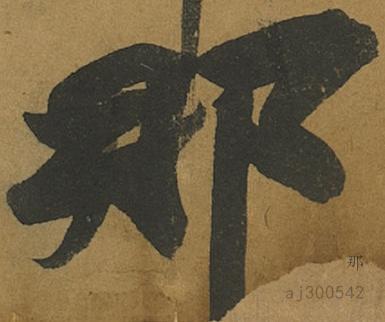 那
那
aj300542